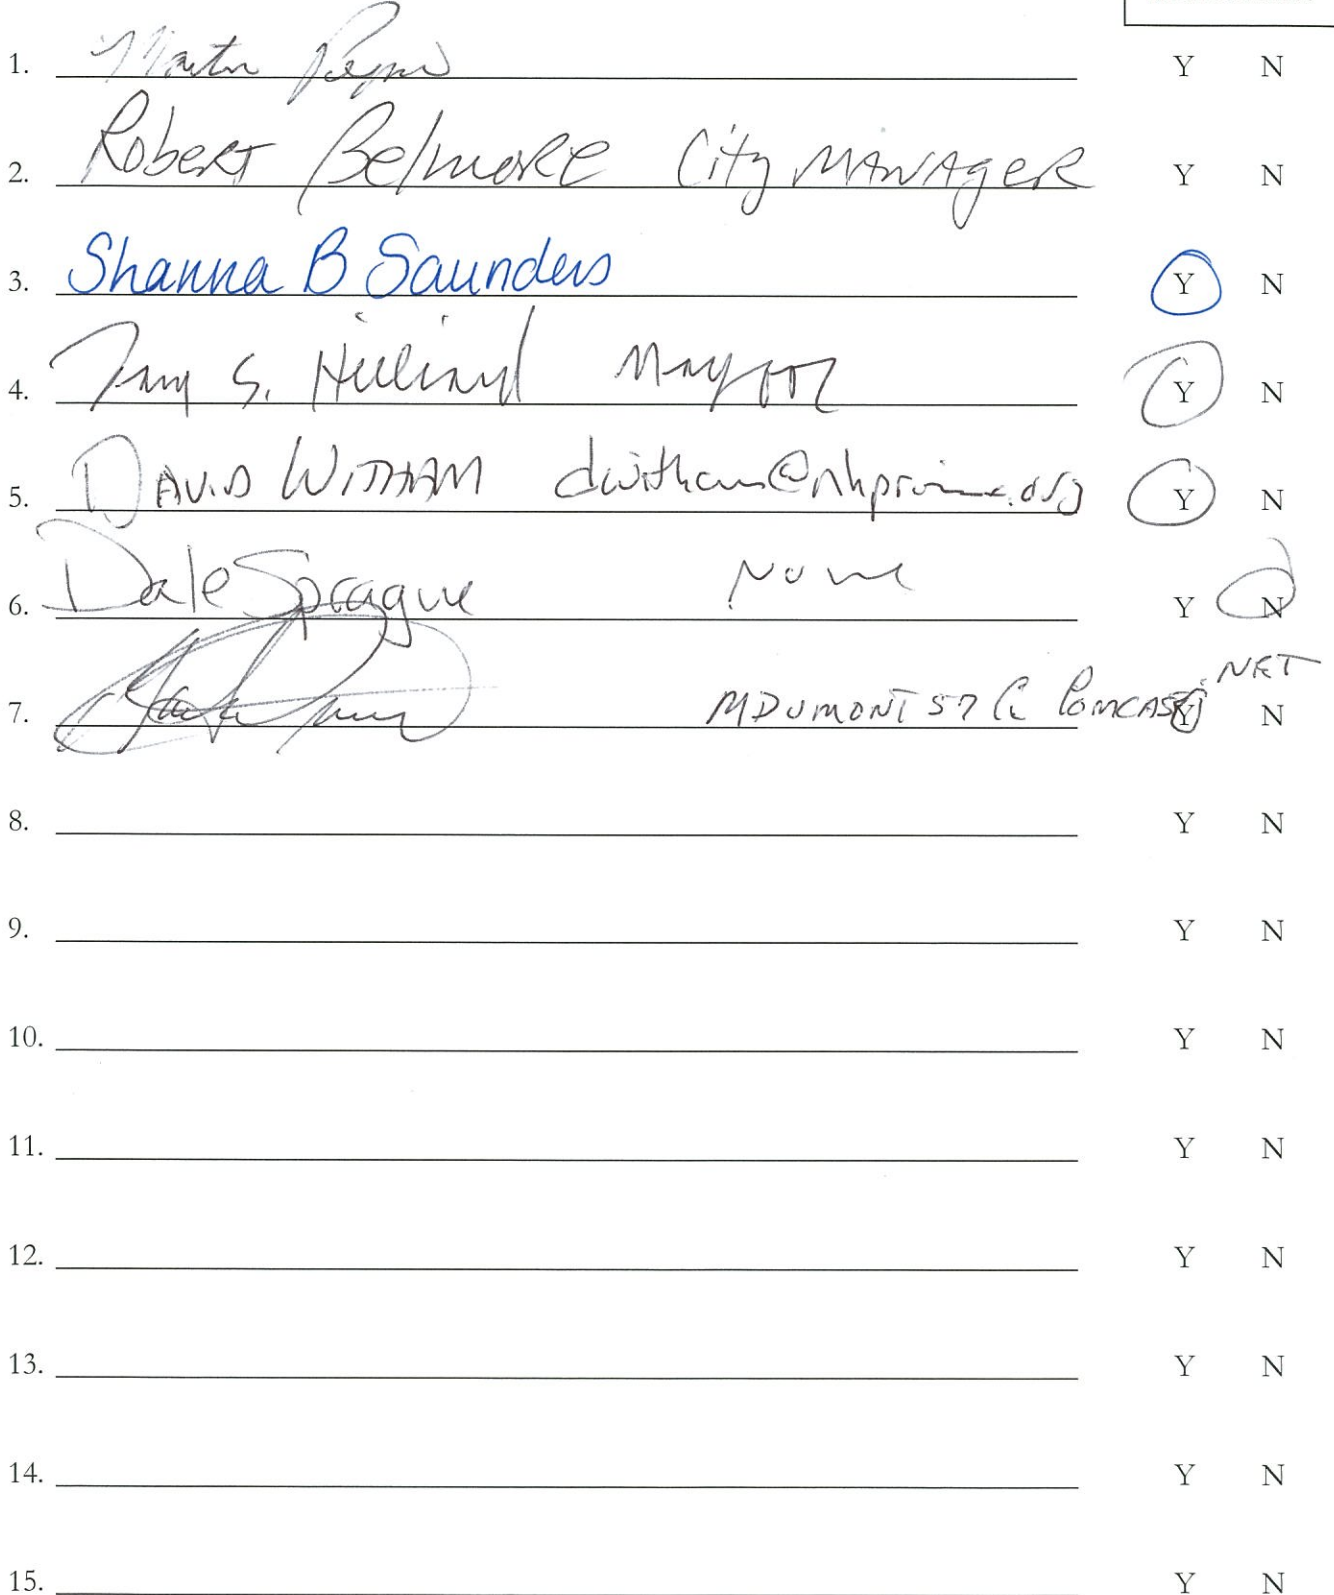 1. Martin Y N
2. Robert Belmore City Manager Y N
3. Shanna B Saunders Y N
4. S. Hilliard Mayor Y N
5. David Witham dwitham@nhprimex.org Y N
6. Dale Sprague None Y N
7. MDUMONT57@COMCAST.NET Y N
8. Y N
9. Y N
10. Y N
11. Y N
12. Y N
13. Y N
14. Y N
15. Y N